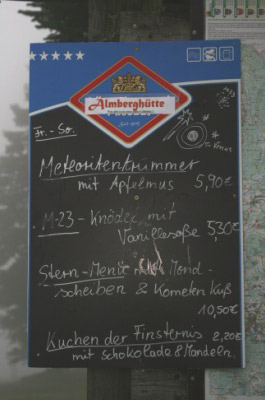 Almberghütte
Fr. - So.
Meteoritentrümmer
mit Apfelmus 5,90€
M-23 - Knödel mit
Vanillesoße 5,30€
Stern - Menü mit Mond -
scheiben & Kometen Kuß
10,50€
Kuchen der Finsternis 2,20€
mit Schokolade & Mandeln.